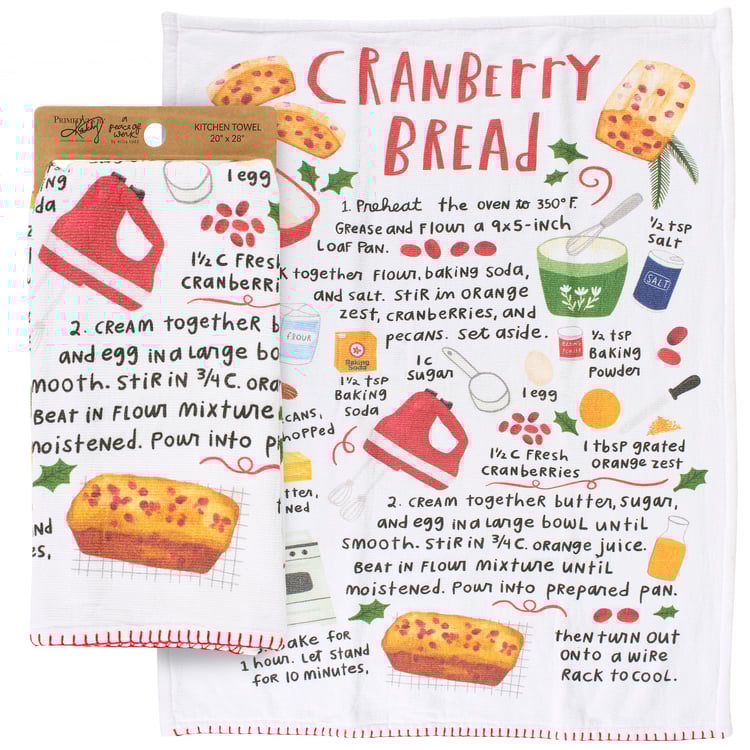 PRIMITIVES BY
Kathy
a
peace of
work
KITCHEN TOWEL
20" x 28"
1 egg
1½ C FRESH
CRANBERRI
2. CREAM together b
and egg in a large bo
mootH. StiR iN ¾ C. ORA
BEAT IN FLOUR MIXTURE
moistened. Pour into p
CRANBERRY
BREAD
1. Preheat the oven to 350° F.
GREASE AND FLOUR a 9x5-inch
LOAF PAN.
K together FLOUR, baking soda,
and salt. Stir in orange
zest, cranberries, and
pecans. Set aside.
½ tsp
SALT
SALT
FLOUR
Baking
Soda
1½ tsp
BAKING
SODA
1 C
SUGAR
1 egg
½ tsp
BAKING
POWDER
CANS,
HOPPED
1½ C FRESH
CRANBERRIES
1 tbsp grated
ORANGE ZEST
tter,
ned
2. CREAM together butter, sugar,
and egg in a large bowl until
smooth. Stir in ¾ C. orange juice.
BEAT IN FLOUR MIXTURE UNTIL
moistened. Pour into prepared pan.
ake for
1 hour. Let stand
for 10 minutes,
then turn out
onto a wire
rack to cool.